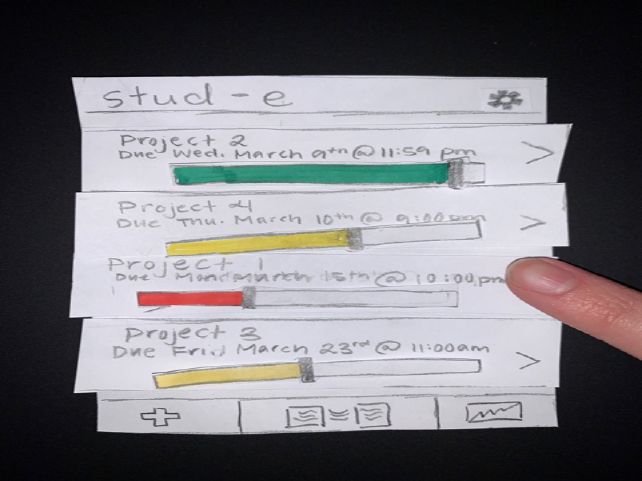 stud-e
Project 2
Due Wed. March 9th @ 11:59 pm
Project 4
Due Thu. March 10th @ 9:00
Project 1
Due March 15th @ 10:00 pm
Project 3
Due Fri. March 23rd @ 11:00am